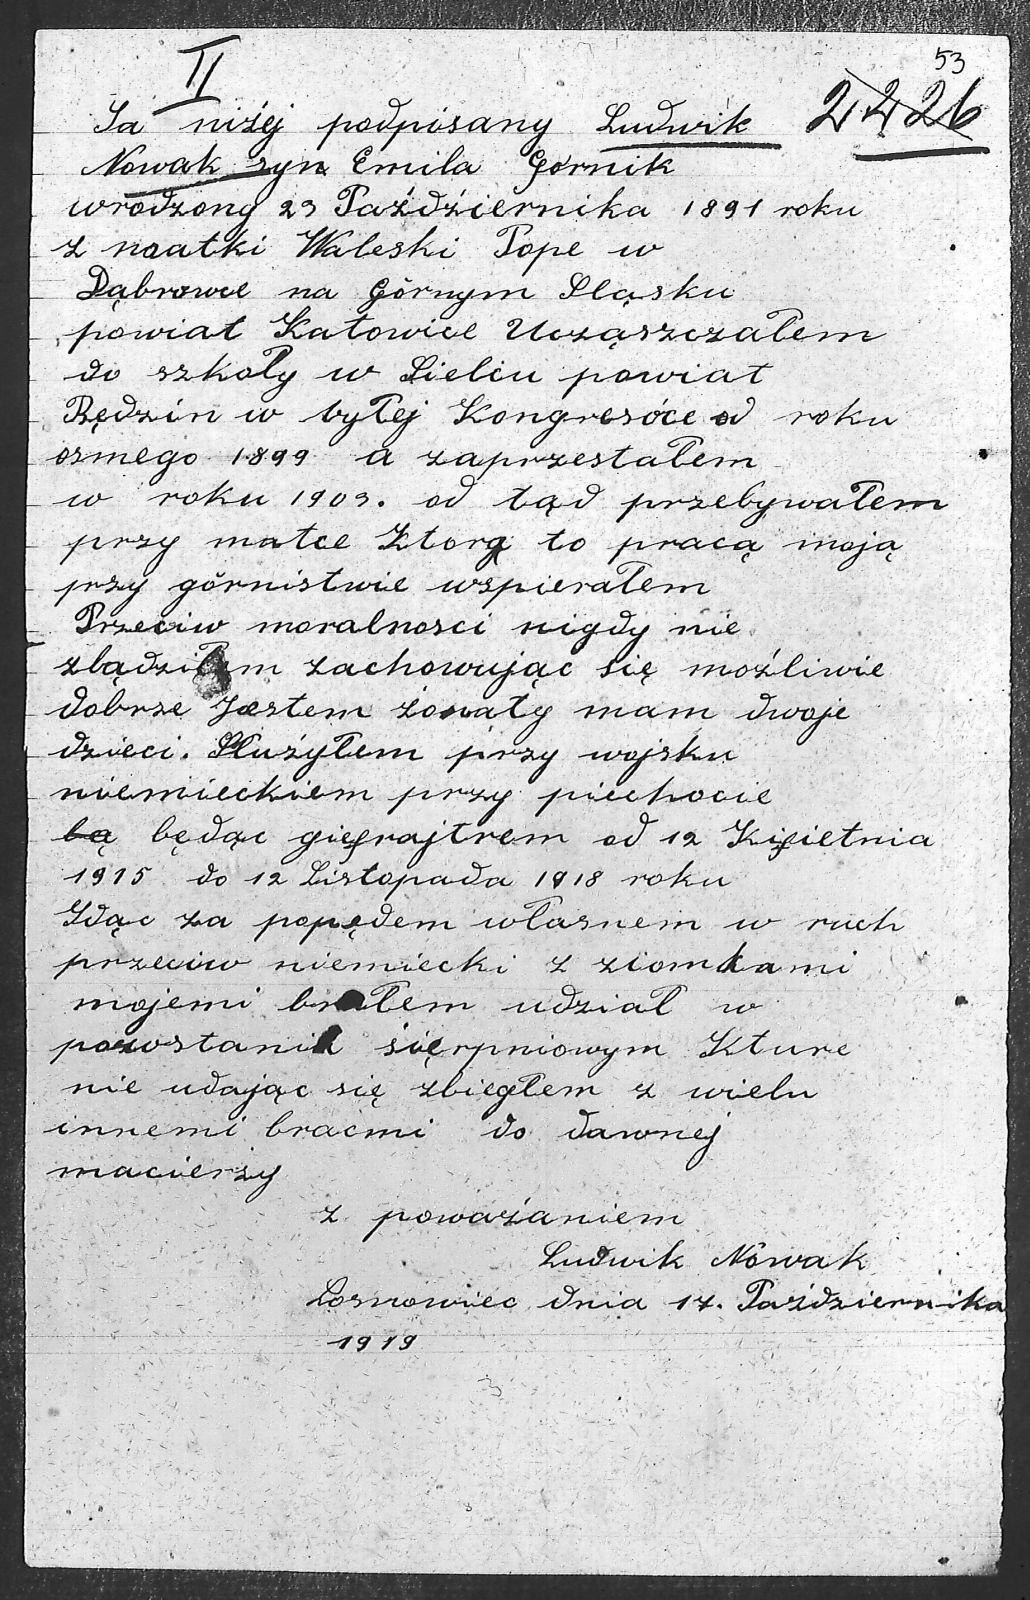 53
II
2226
Ja niżej podpisany Ludwik
Nowak syn Emila Górnik
wrodzony 23 Października 1891 roku
z matki Waleski Pope w
Dąbrowce na Górnym Sląsku
powiat Katowice Ucząszczałem
do szkoły w Sielcu powiat
Będzin w byłej Kongresóce od roku
osmego 1899 a zaprzestałem
w roku 1903. od tąd przebywałem
przy matce Ktorą to pracą moją
przy górnistwie wspierałem
Przeciw moralnosci nigdy nie
zbądziłem zachowując się możliwie
dobrze Jestem żonaty mam dwoje
dzieci. Służyłem przy wojsku
niemieckiem przy piechocie
bą będąc giefrajtrem od 12 Kwietnia
1915 do 12 Listopada 1918 roku
Idąc za popędem własnem w ruch
przeciw niemiecki z ziomkami
mojemi brałem udział w
powstaniu sierpniowym Kture
nie udając się zbiegłem z wielu
innemi bracmi do dawnej
macierzy
z poważaniem
Ludwik Nowak
Sosnowiec dnia 14. Października
1919